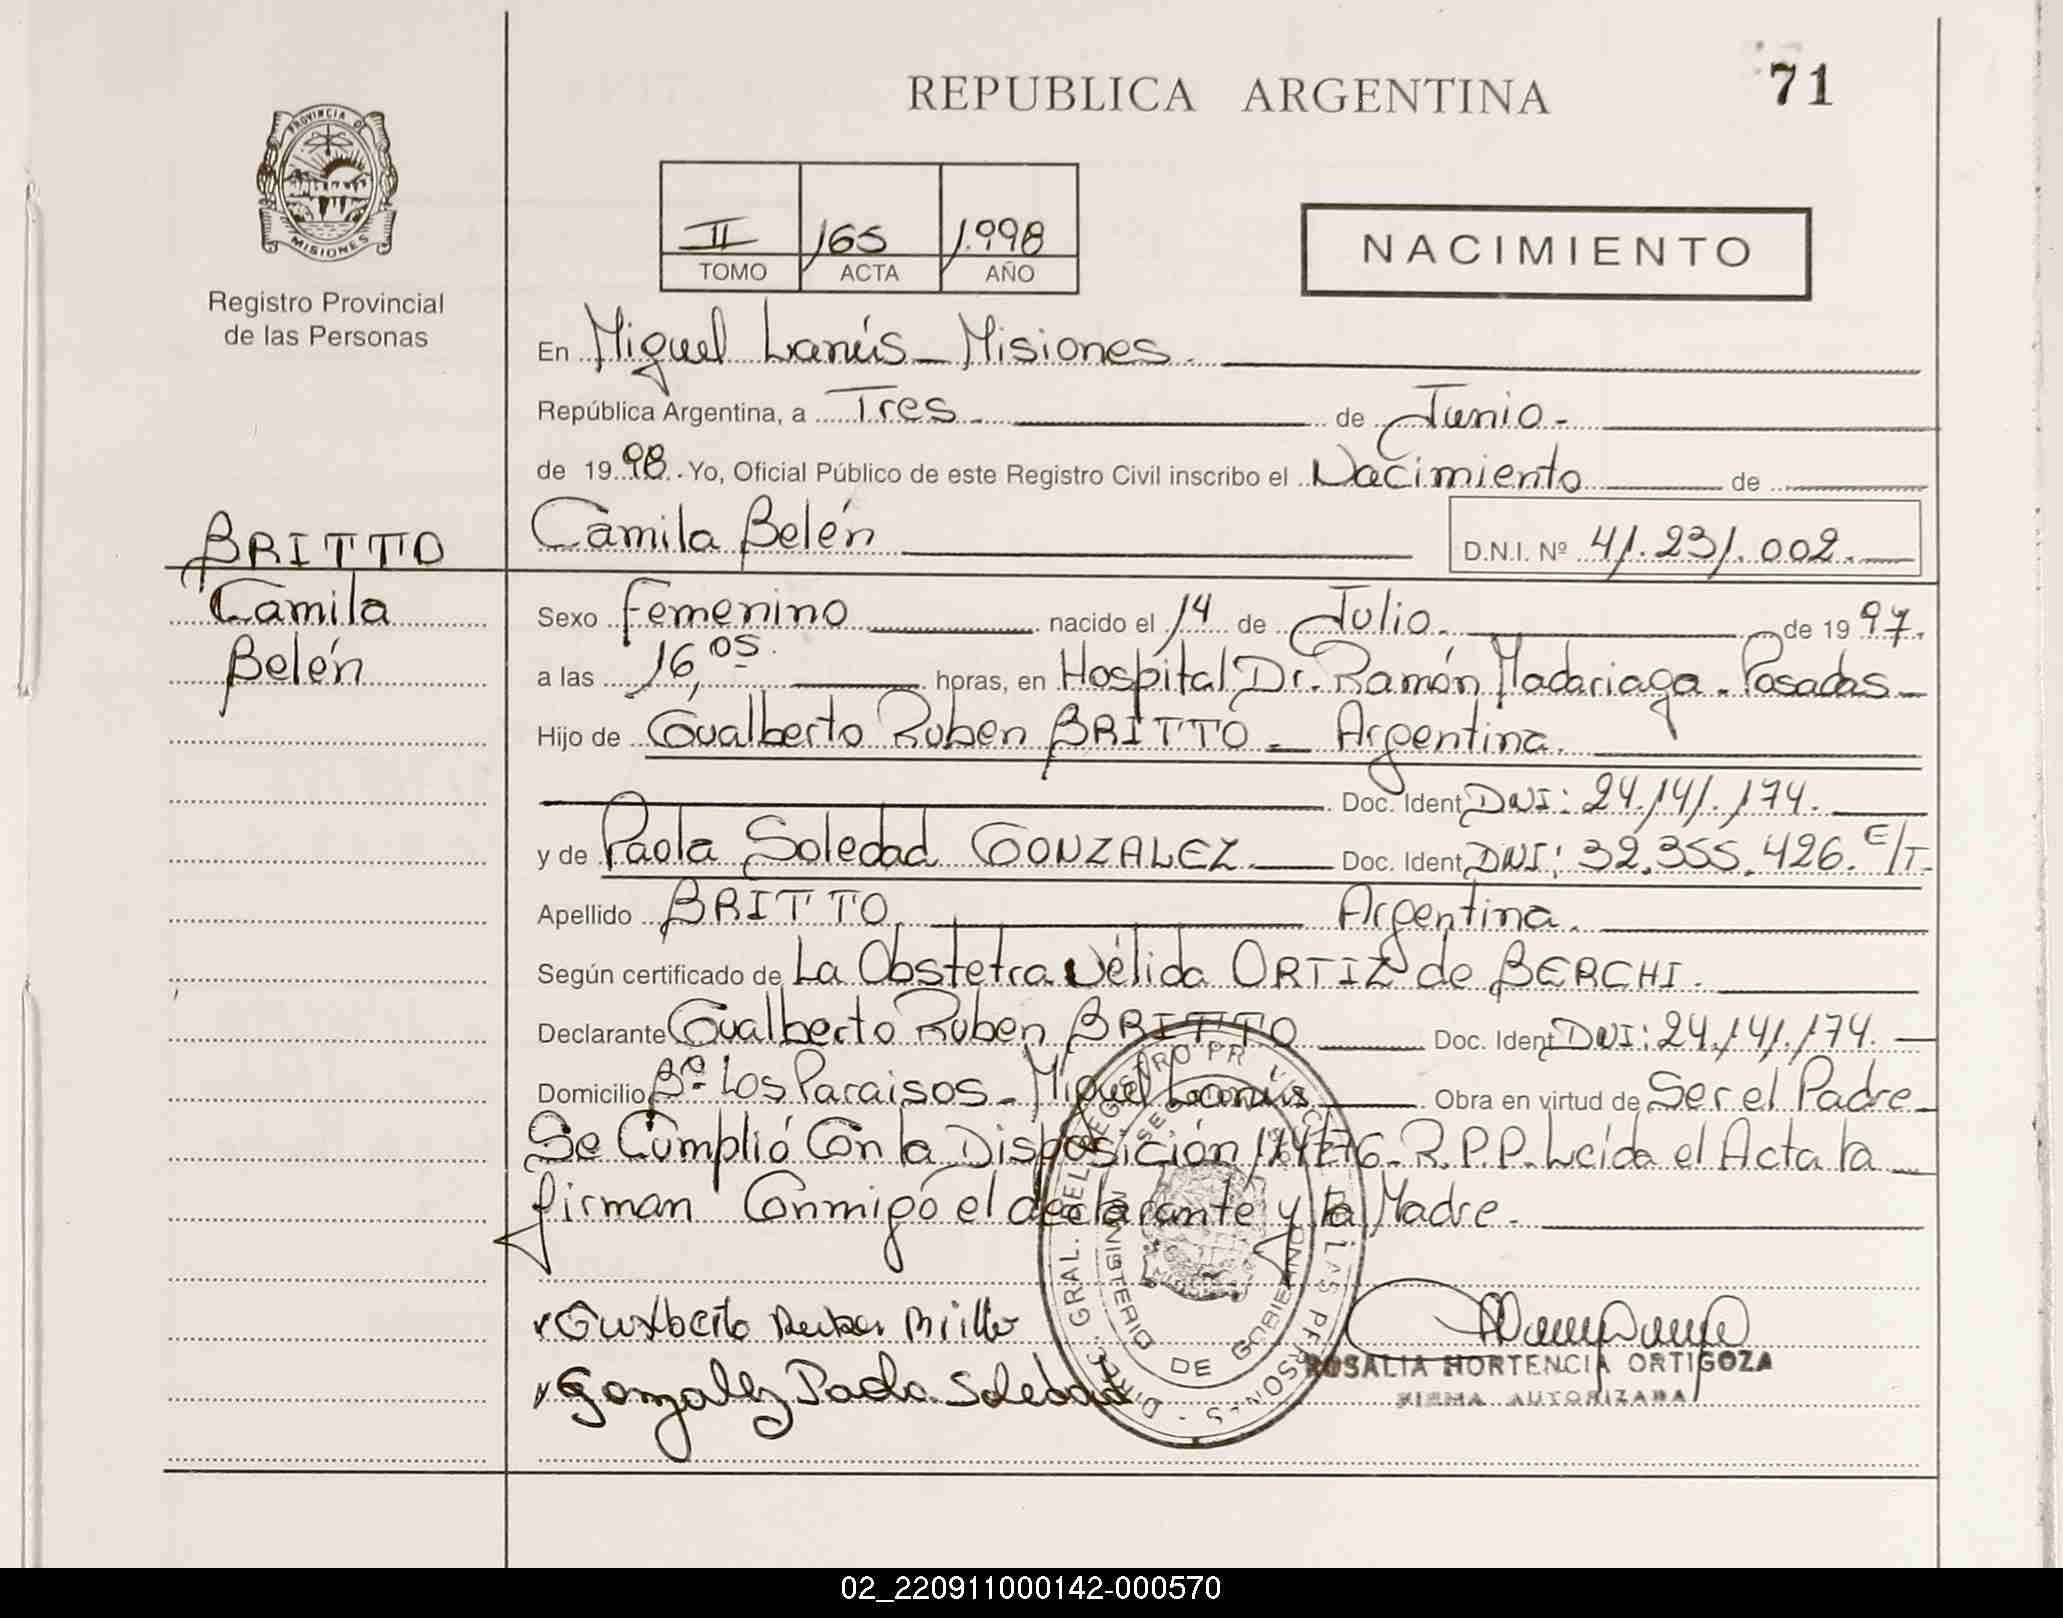 REPUBLICA ARGENTINA
71
PROVINCIA DE
MISIONES
Registro Provincial
de las Personas
II 165 1.998
TOMO ACTA AÑO
NACIMIENTO
En Miguel Lanús - Misiones.
República Argentina, a Tres de Junio.
de 1998. Yo, Oficial Público de este Registro Civil inscribo el Nacimiento de
BRITTO
Camila
Belén
Camila Belén D.N.I. Nº 41.231.002.
Sexo Femenino nacido el 14 de Julio. de 1997.
a las 16,05. horas, en Hospital Dr. Ramón Madariaga - Posadas
Hijo de Gualberto Ruben BRITTO - Argentina.
Doc. Ident DNI: 24.141.174.
y de Paola Soledad GONZALEZ Doc. Ident DNI: 32.355.426. C/T.
Apellido BRITTO Argentina.
Según certificado de La Obstetra Nélida ORTIZ de BERCHI.
Declarante Gualberto Ruben BRITTO Doc. Ident DNI: 24.141.174.
Domicilio Bº Los Paraisos - Miguel Lanús Obra en virtud de Ser el Padre
Se Cumplió Con la Disposición R.P.P. Leída el Acta la
firman Conmigo el declarante y la Madre.
Gualberto Ruben Britto
Gonzalez Paola Soledad
ROSALIA HORTENCIA ORTIGOZA
FIRMA AUTORIZADA
MINISTERIO DE GOBIERNO
02_220911000142-000570